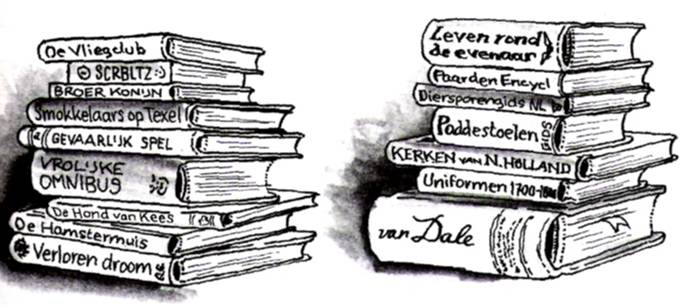 De Vliegclub
SCRBLTZ
BROER KONIJN
Smokkelaars op Texel
GEVAARLIJK SPEL
VROLIJKE
OMNIBUS
De Hond van Kees
De Hamstermuis
Verloren droom
Leven rond
de evenaar
Paarden Encycl
Diersporengids NL
Paddestoelen
GIDS
KERKEN van N.HOLLAND
Uniformen 1700-1800
van Dale